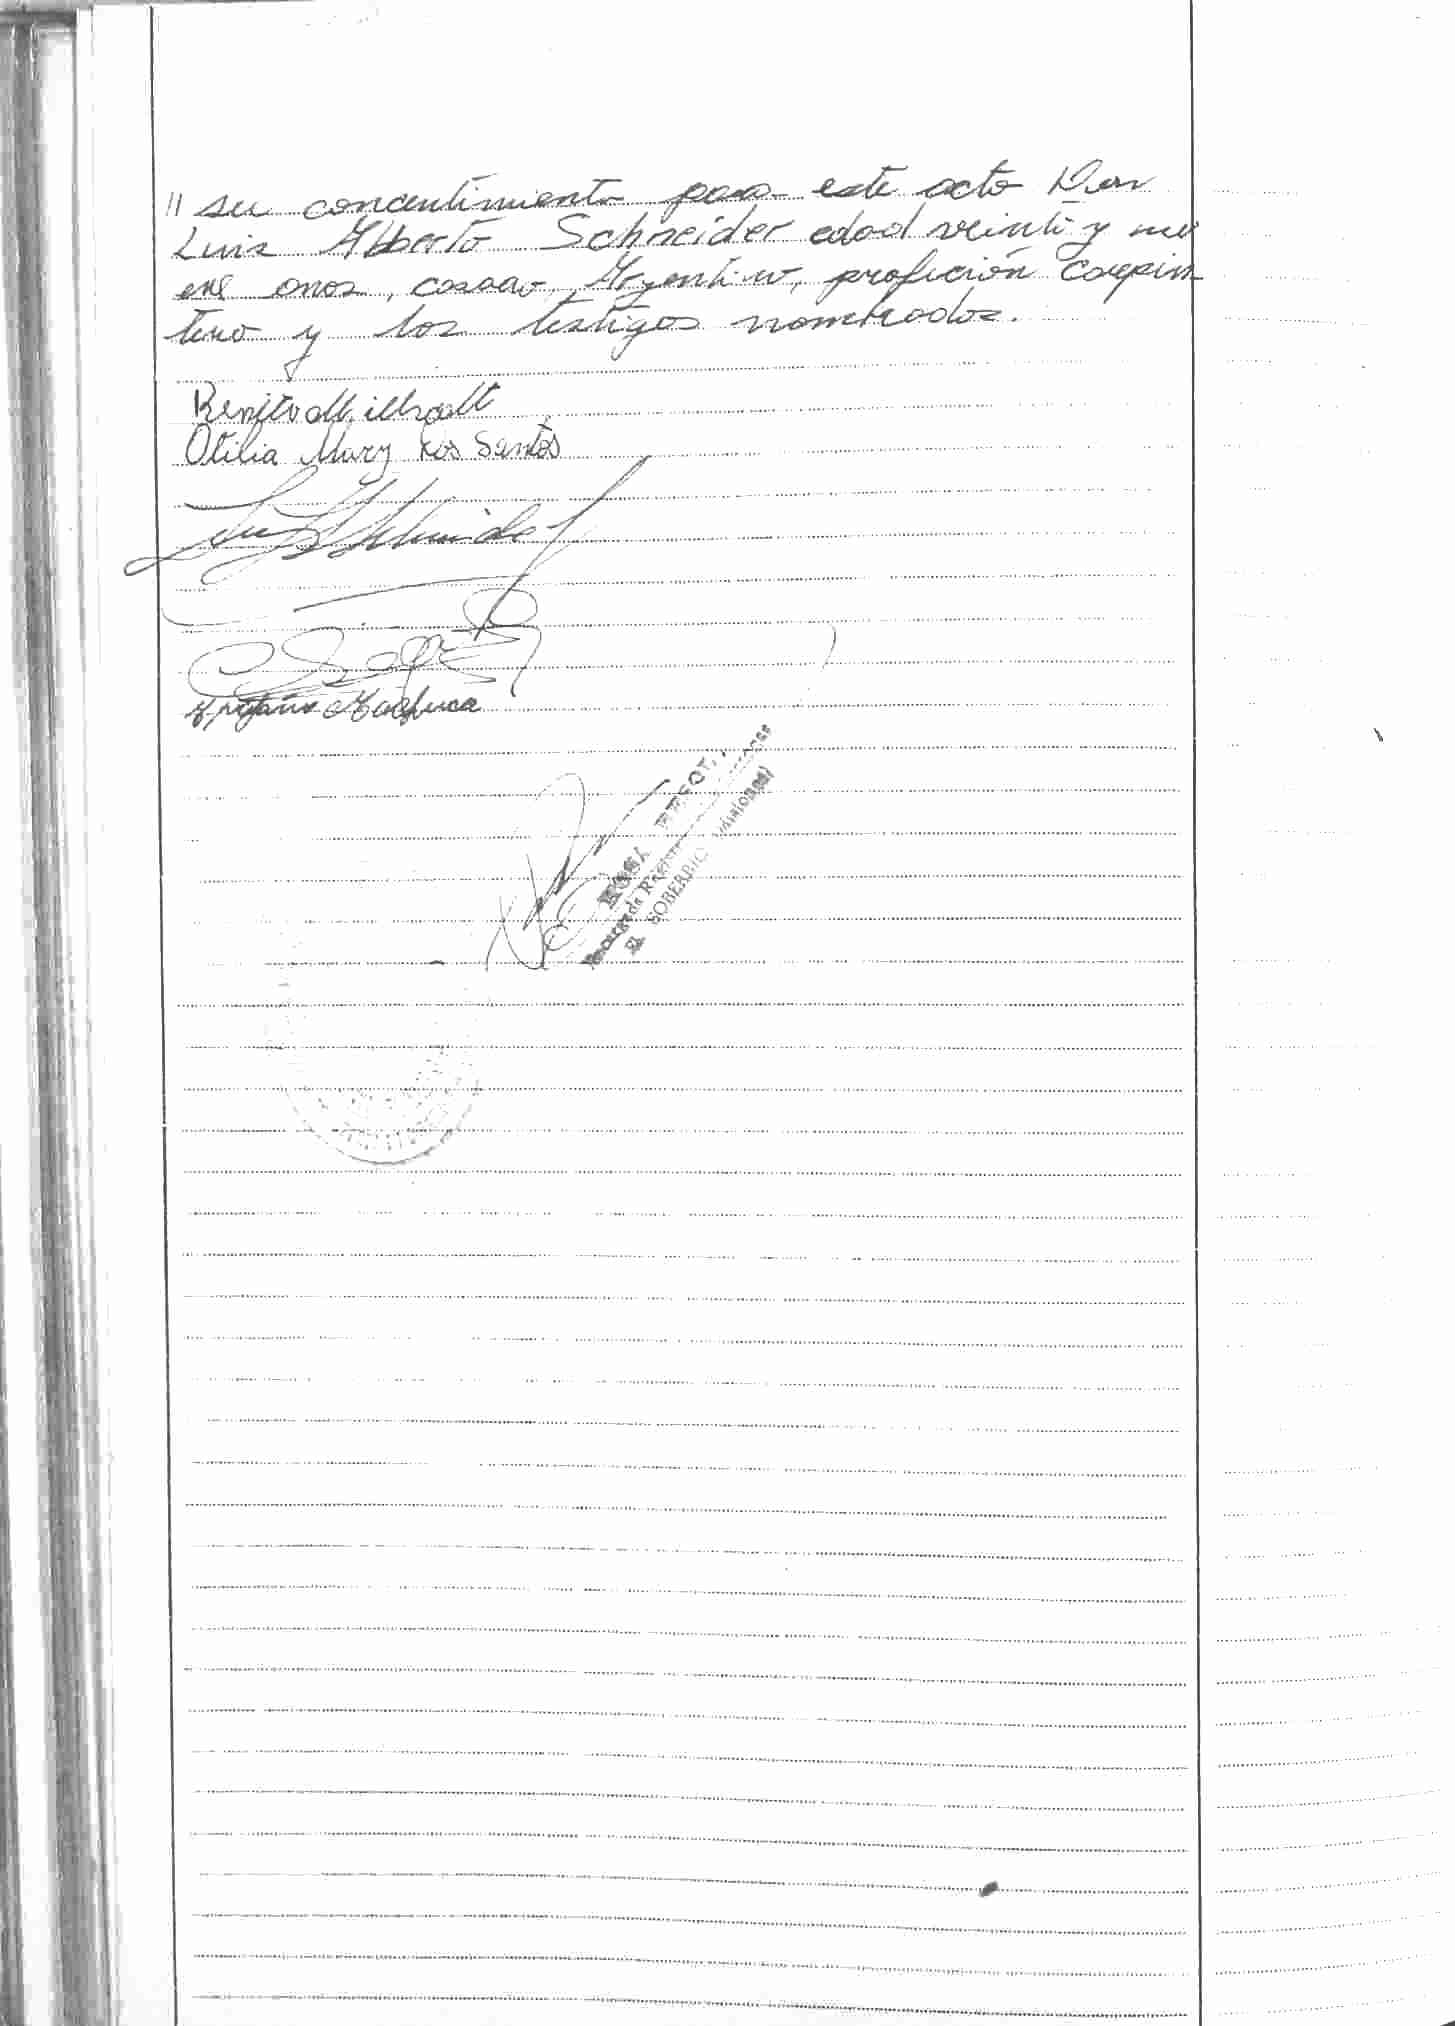 // su concentimiento para este acto Don
Luis Alberto Schneider edad veinti y nu
eve anos, casado, Argentino, profición Carpin
tero y los testigos nombrados.
Benito
Otilia Mary Dos Santos
Machuca
ROSA
Encargada Registro
EL SOBERBIO (Misiones)